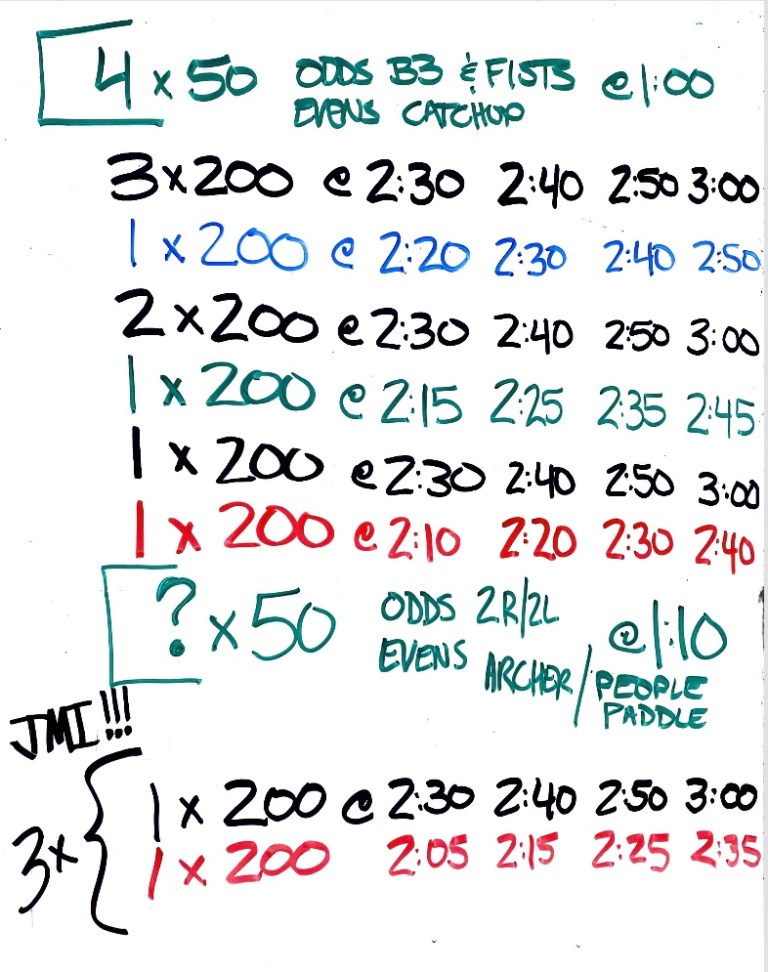 4 x 50 ODDS B3 & FISTS @ 1:00
EVENS CATCHUP
3 x 200 @ 2:30 2:40 2:50 3:00
1 x 200 @ 2:20 2:30 2:40 2:50
2 x 200 @ 2:30 2:40 2:50 3:00
1 x 200 @ 2:15 2:25 2:35 2:45
1 x 200 @ 2:30 2:40 2:50 3:00
1 x 200 @ 2:10 2:20 2:30 2:40
? x 50 ODDS 2R/2L @ 1:10
EVENS ARCHER / PEOPLE PADDLE
JMI!!!
3x { 1 x 200 @ 2:30 2:40 2:50 3:00
1 x 200 2:05 2:15 2:25 2:35